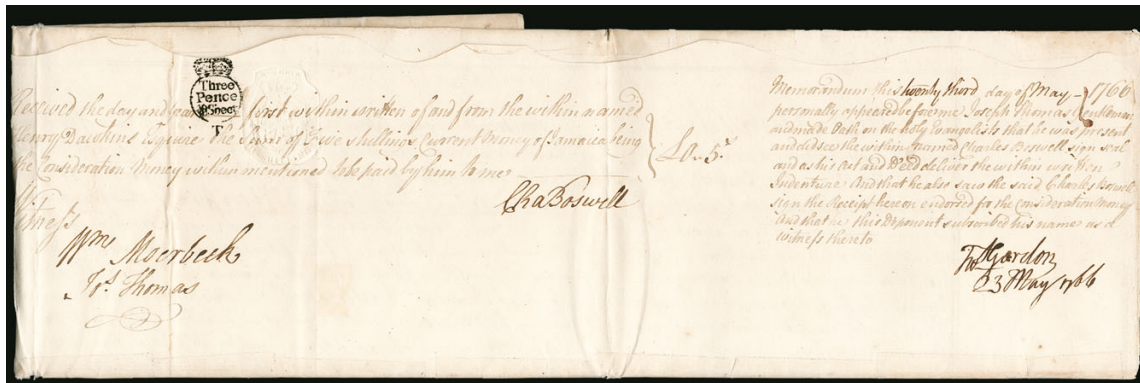 Three
Pence
Received the day and year first within written of and from the within named
Henry Dawkins Esquire the Sum of Five shillings Current Money of Jamaica being
the Consideration Money within mentioned to be paid by him to me
£0„5.s
Cha Boswell
Witness
Wm Moerbeck
Jos. Thomas
Memorandum this twenty third day of May 1766
personally appeared before me Joseph Thomas Gentleman
and made Oath on the holy Evangelists that he was present
and did see the within named Charles Boswell sign seal
and as his Act and Deed deliver the within written
Indenture And that he also saw the said Charles Boswell
sign the Receipt hereon endorsed for the Consideration Money
And that he this Deponent subscribed his name as a
witness thereto
Gordon
23 May 1766